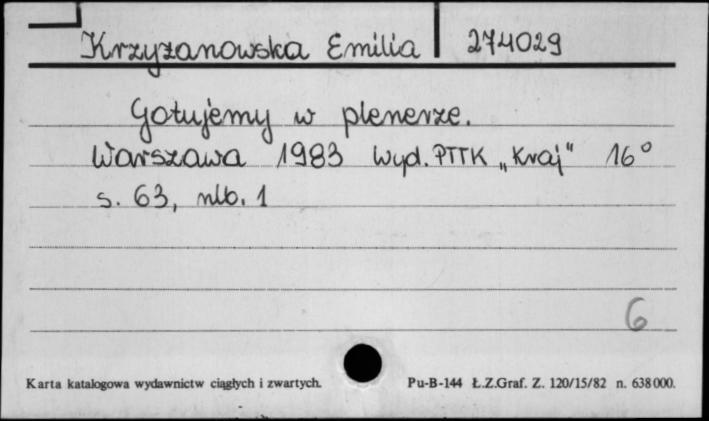 Krzyżanowska Emilia 274029
Gotujemy w plenerze.
Warszawa 1983 Wyd. PTTK „Kraj" 16°
s. 63, nlb. 1
6
Karta katalogowa wydawnictw ciągłych i zwartych. Pu-B-144 Ł.Z.Graf. Z. 120/15/82 n. 638000.